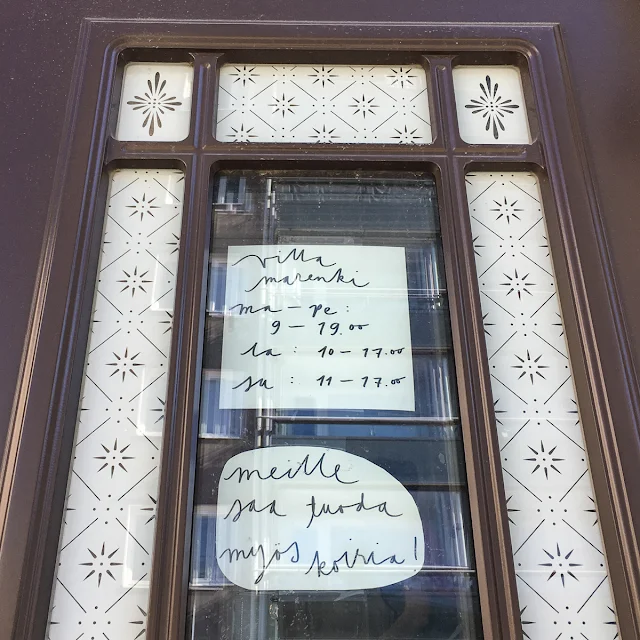 villa
marenki
ma – pe :
9 – 19.00
la : 10 – 17.00
su : 11 – 17.00
meille
saa tuoda
myös koiria!